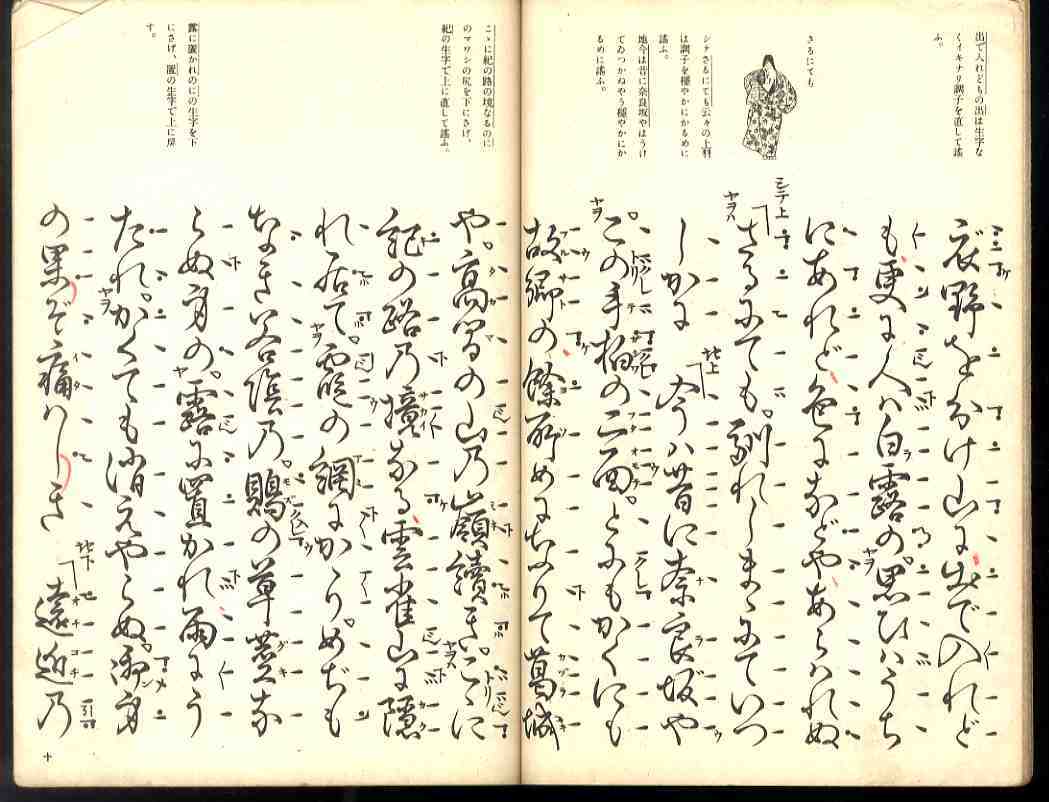 出で入れどもの出は生字な
くイキナリ調子を直して謠
ふ。
さるにても
シテさるにても云々の上羽
は調子を穩やかにかるめに
謠ふ。
地今は昔に奈良坂やはうけ
てゐつかぬやう穩やかにか
るめに謠ふ。
衣野を分け山に出で入れど
も更に人は白露の。思ひはうち
にあれど色になどやあらはれぬ
シテ上 さるにても。馴れしまゝにていつ
しかに 地上 今は昔に奈良坂や
この手柏の二面。とにもかくにも
故郷の餘所めになりて葛城
こゝに紀の路の境なるのに
のマワシの尻を下にさげ、
紀の生字で上に直して謠ふ。
露に置かれのにの生字を下
にさげ、置の生字で上に戻
す。
や。高間の山乃嶺續き。こゝに
紀の路乃境なる雲雀山に隱
れ居て。霞の網にかゝり。めぢも
なき谷陰乃。鵙の草莖な
らぬ身の。露に置かれ雨にう
たれ。かくても消えやらぬ。御身
の果ぞ痛はしき 地下 遠近乃
十